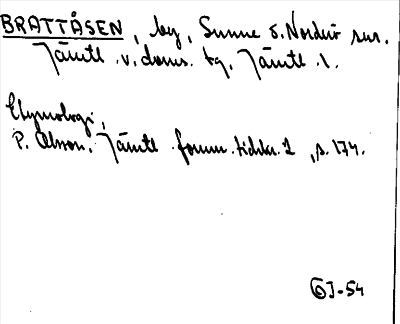 BRATTÅSEN, by, Sunne o. Norderö sns.
Jämtl. v. doms. tg, Jämtl. l.
Etymologi,
P. Olsson, Jämtl. fornm. tidskr. 1, s. 174.
J-54